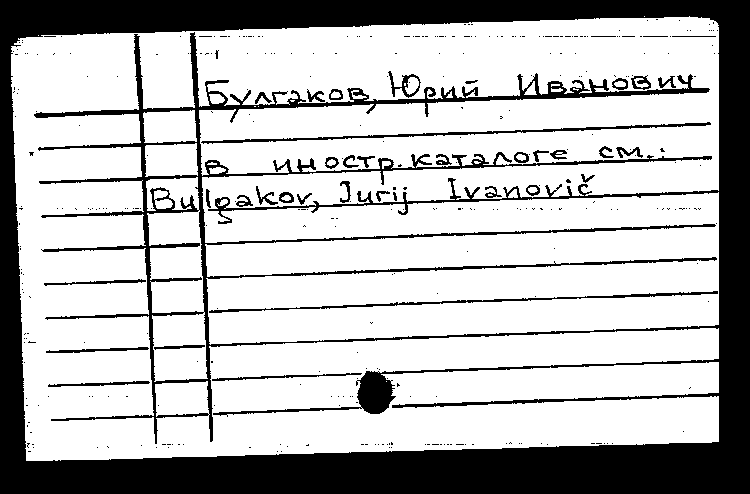 Булгаков, Юрий Иванович
в иностр. каталоге см.:
Bulgakov, Jurij Ivanovič